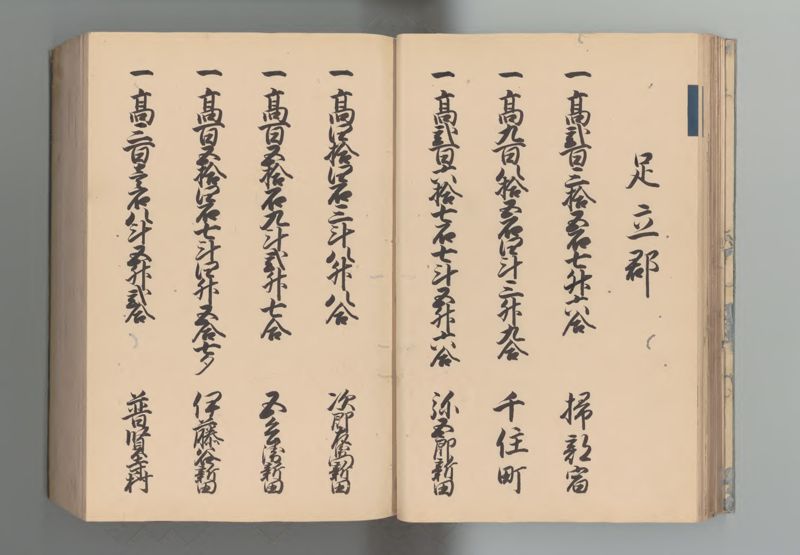 足立郡
一 高弐百三拾五石七升六合 掃部宿
一 高九百八拾五石四斗三升九合 千住町
一 高弐百六拾七石七斗五升六合 弥五郎新田
一 高四拾四石三斗八升八合 次郎左衛門新田
一 高百五拾石九斗弐升七合 五兵衛新田
一 高百五拾四石七斗四升五合七夕 伊藤谷新田
一 高三百三石八斗五升弐合 普賢寺村